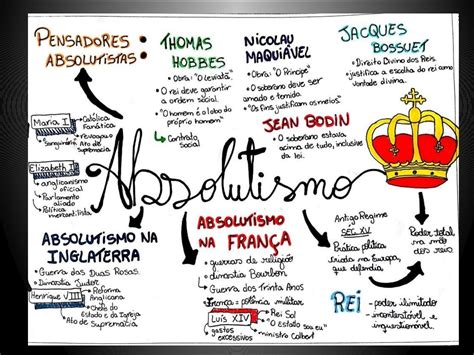 PENSADORES :
ABSOLUTISTAS :
THOMAS
HOBBES
• Obra: "O Leviatã"
• O rei deve garantir
a ordem social.
• "O homem é o lobo do
próprio homem"
↳ Contrato
Social
NICOLAU
MAQUIÁVEL
• Obra: "O Príncipe"
• O soberano deve ser
amado e temido
• "Os fins justificam os meios"
JACQUES
BOSSUET
• Direito Divino dos Reis
• justifica a escolha do rei como
vontade divina.
JEAN BODIN
• O soberano estava
acima de tudo, inclusive
da lei.
Maria I
Católica
Fanática
→ revogação
Ato de
supremacia
Sanguinária
Elizabeth I
→ anglicanismo
oficial
→ Parlamento
aliado
→ Política
mercantilista
Absolutismo
ABSOLUTISMO NA
INGLATERRA
• Guerra das Duas Rosas.
• Dinastia Tudor
Henrique VIII
Reforma
Anglicana
Chefe do
Estado e da Igreja
Ato de Supremacia
ABSOLUTISMO
NA FRANÇA
• guerras de religião
• dinastia Bourbon
• Guerra dos Trinta Anos
França = potência militar
Luís XIV
Rei Sol
"O Estado sou eu"
gastos
excessivos
→ ministro Colbert
Antigo Regime
SÉC. XV
Prática política
criada na Europa,
que defendia
Poder total
na mão
dos reis
REI
- poder ilimitado
- incontestável e
inquestionável